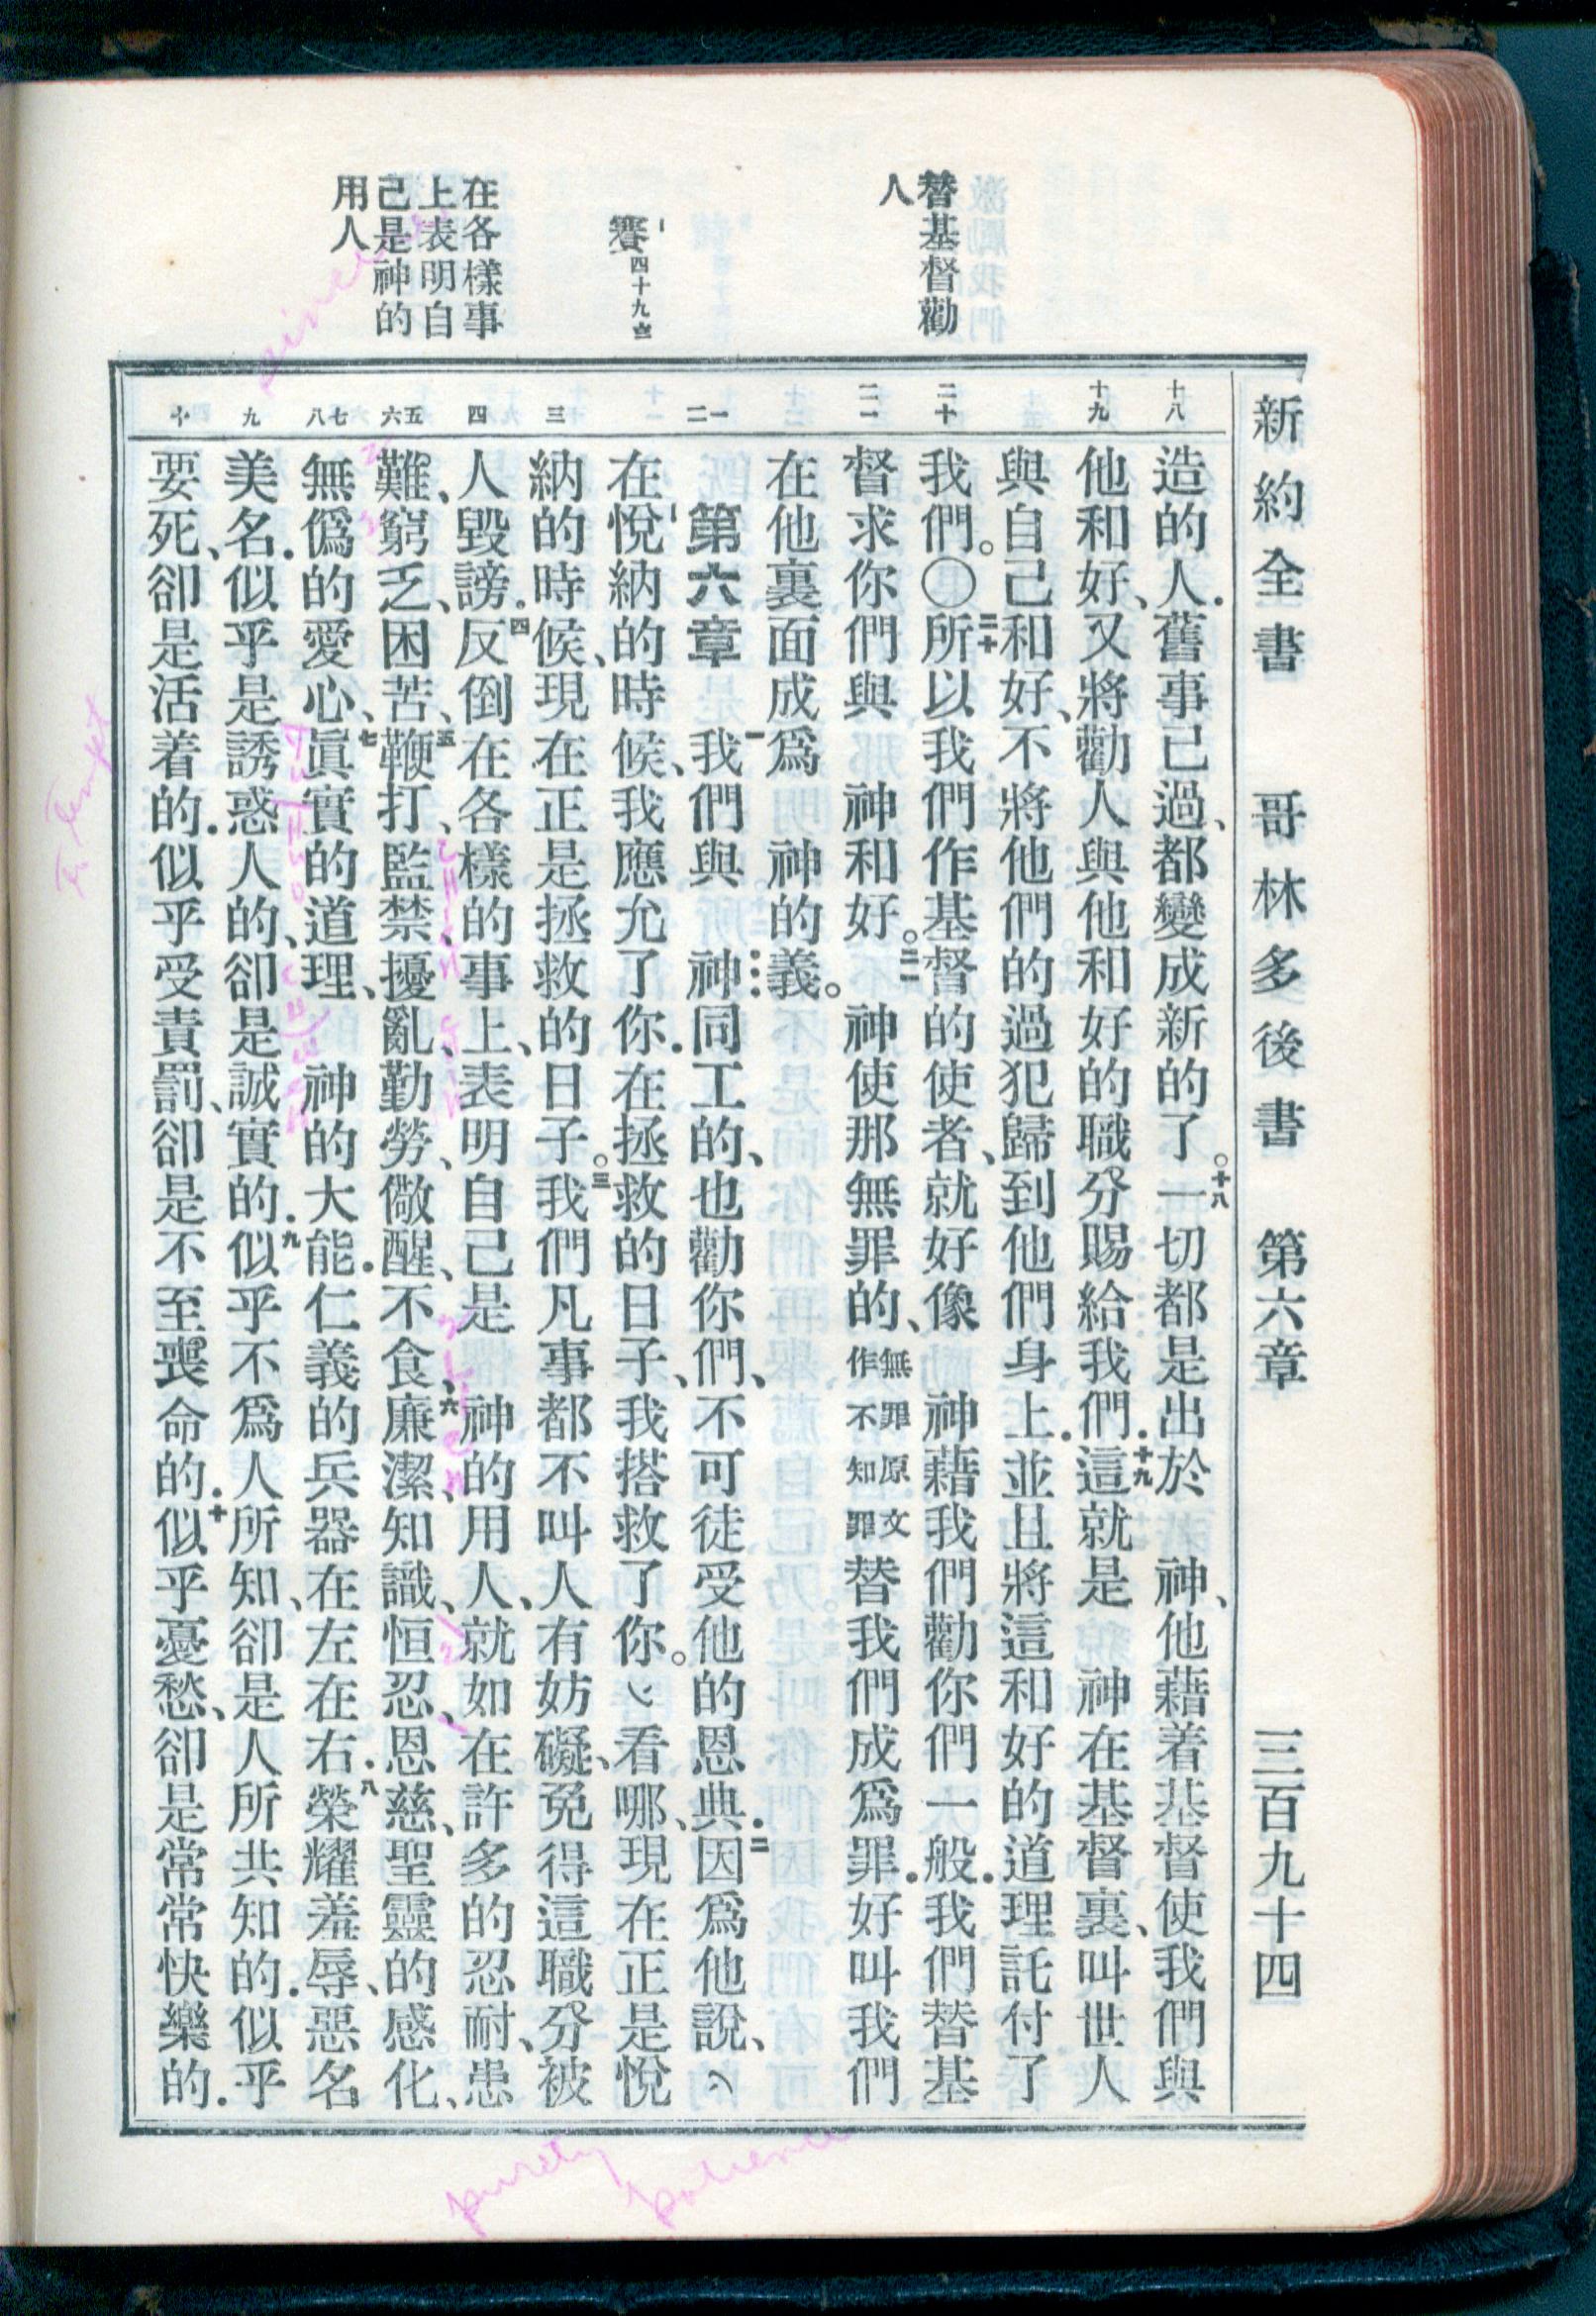 新約全書 哥林多後書 第六章 三百九十四
替基督勸
人
賽四十九
在各樣事
上表明自
己是神的
用人
十八
十九
二十
二一
一
二
三
四
五
六
七
八
九
十
造的人.舊事已過、都變成新的了。十八一切都是出於 神、他藉着基督使我們與
他和好、又將勸人與他和好的職分賜給我們.十九這就是 神在基督裏、叫世人
與自己和好、不將他們的過犯歸到他們身上.並且將這和好的道理託付了
我們。〇二十所以我們作基督的使者、就好像 神藉我們勸你們一般.我們替基
督求你們與 神和好。二一 神使那無罪的、無罪原文作不知罪替我們成爲罪.好叫我們
在他裏面成爲 神的義。
第六章 一我們與 神同工的、也勸你們、不可徒受他的恩典.二因爲他說、
在悅納的時候、我應允了你.在拯救的日子、我搭救了你。看哪、現在正是悅
納的時候、現在正是拯救的日子。三我們凡事都不叫人有妨礙、免得這職分被
人毀謗.四反倒在各樣的事上、表明自己是 神的用人、就如在許多的忍耐、患
難、窮乏、困苦、五鞭打、監禁、擾亂、勤勞、儆醒、不食、六廉潔、知識、恒忍、恩慈、聖靈的感化、
無僞的愛心、七眞實的道理、 神的大能.仁義的兵器在左在右.八榮耀羞辱、惡名
美名.似乎是誘惑人的、卻是誠實的.九似乎不爲人所知、卻是人所共知的.似乎
要死、卻是活着的.似乎受責罰、卻是不至喪命的.十似乎憂愁、卻是常常快樂的.
To Tempt
purety
patience